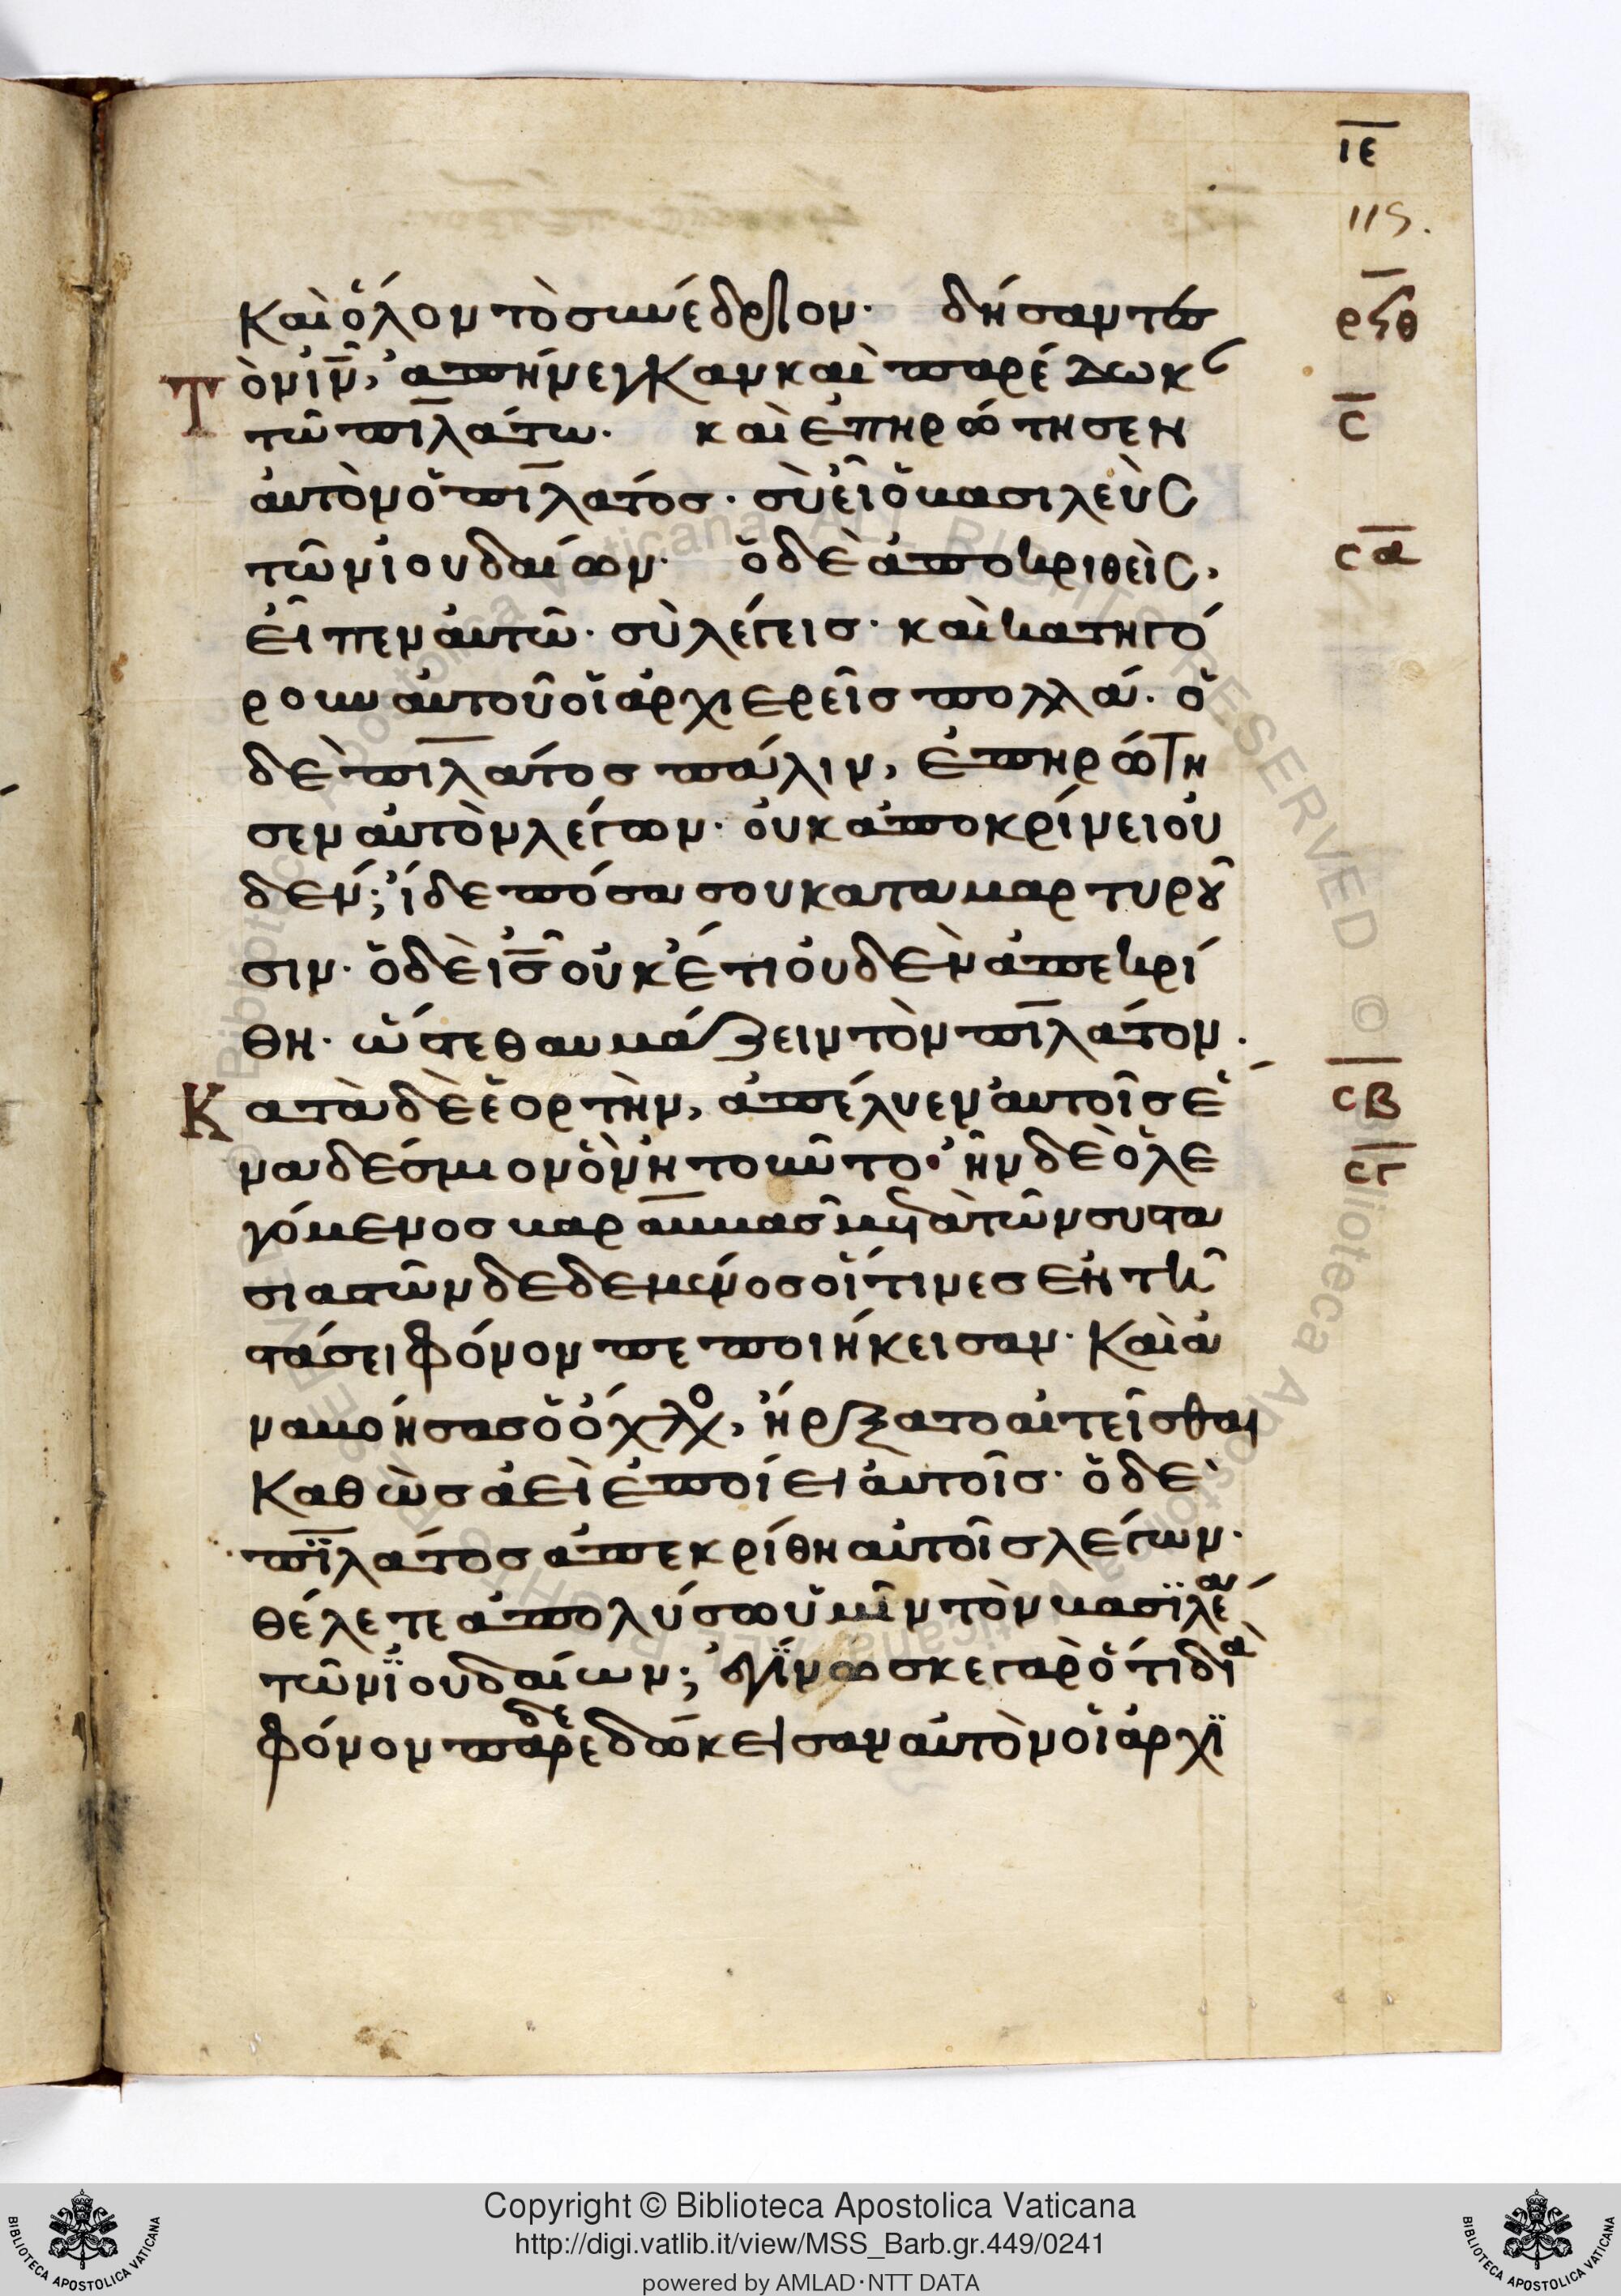 ιε
115.
καὶ ὅλον τὸ συνέδριον· δήσαντες
ρϟθ
Τὸν ιν̅, ἀπήνεγκαν καὶ παρέδωκ
τῶ πιλάτω· καὶ ἐπηρώτησεν
ς
αὐτὸν ὁ πιλάτος· σὺ εἶ ὁ βασιλεὺς
τῶν ἰουδαίων· ὁ δὲ ἀποκριθεὶς,
ςα
εἶπεν αὐτῶ· σὺ λέγεις· καὶ κατηγό
ρουν αὐτοῦ οἱ ἀρχιερεῖς πολλά· ὁ
δὲ πιλάτος πάλιν, ἐπηρώτη
σεν αὐτὸν λέγων· οὐκ ἀποκρίνει οὐ
δέν; ἴδε πόσα σου καταμαρτυροῦ
σιν· ὁ δὲ ις̅ οὐκέτι οὐδὲν ἀπεκρί
θη· ὥστε θαυμάζειν τὸν πιλάτον·
Κατὰ δὲ ἑορτὴν, ἀπέλυεν αὐτοῖς ἕ
ςβ
να δέσμιον ὃν ἠτοῦντο· ἦν δὲ ὁ λε
ςγ
γόμενος βαραββᾶς μετὰ τῶν συστα
σιαστῶν δεδεμένος οἵτινες ἐν τῆ
στάσει φόνον πεποιήκεισαν· καὶ ἀ
ναβοήσας ὁ ὄχλος, ἤρξατο αἰτεῖσθαι
καθὼς ἀεὶ ἐποίει αὐτοῖς· ὁ δὲ
πϊλάτος ἀπεκρίθη αὐτοῖς λέγων·
θέλετε ἀπολύσω ὑμῖν τὸν βασϊλέα
τῶν ϊουδαίων; ἐγΐνωσκε γὰρ ὅτι διὰ
φόνον παρεδεδώκεισαν αὐτὸν οἱ ἀρχϊ
Copyright © Biblioteca Apostolica Vaticana
http://digi.vatlib.it/view/MSS_Barb.gr.449/0241
powered by AMLAD·NTT DATA
BIBLIOTECA APOSTOLICA VATICANA
BIBLIOTECA APOSTOLICA VATICANA